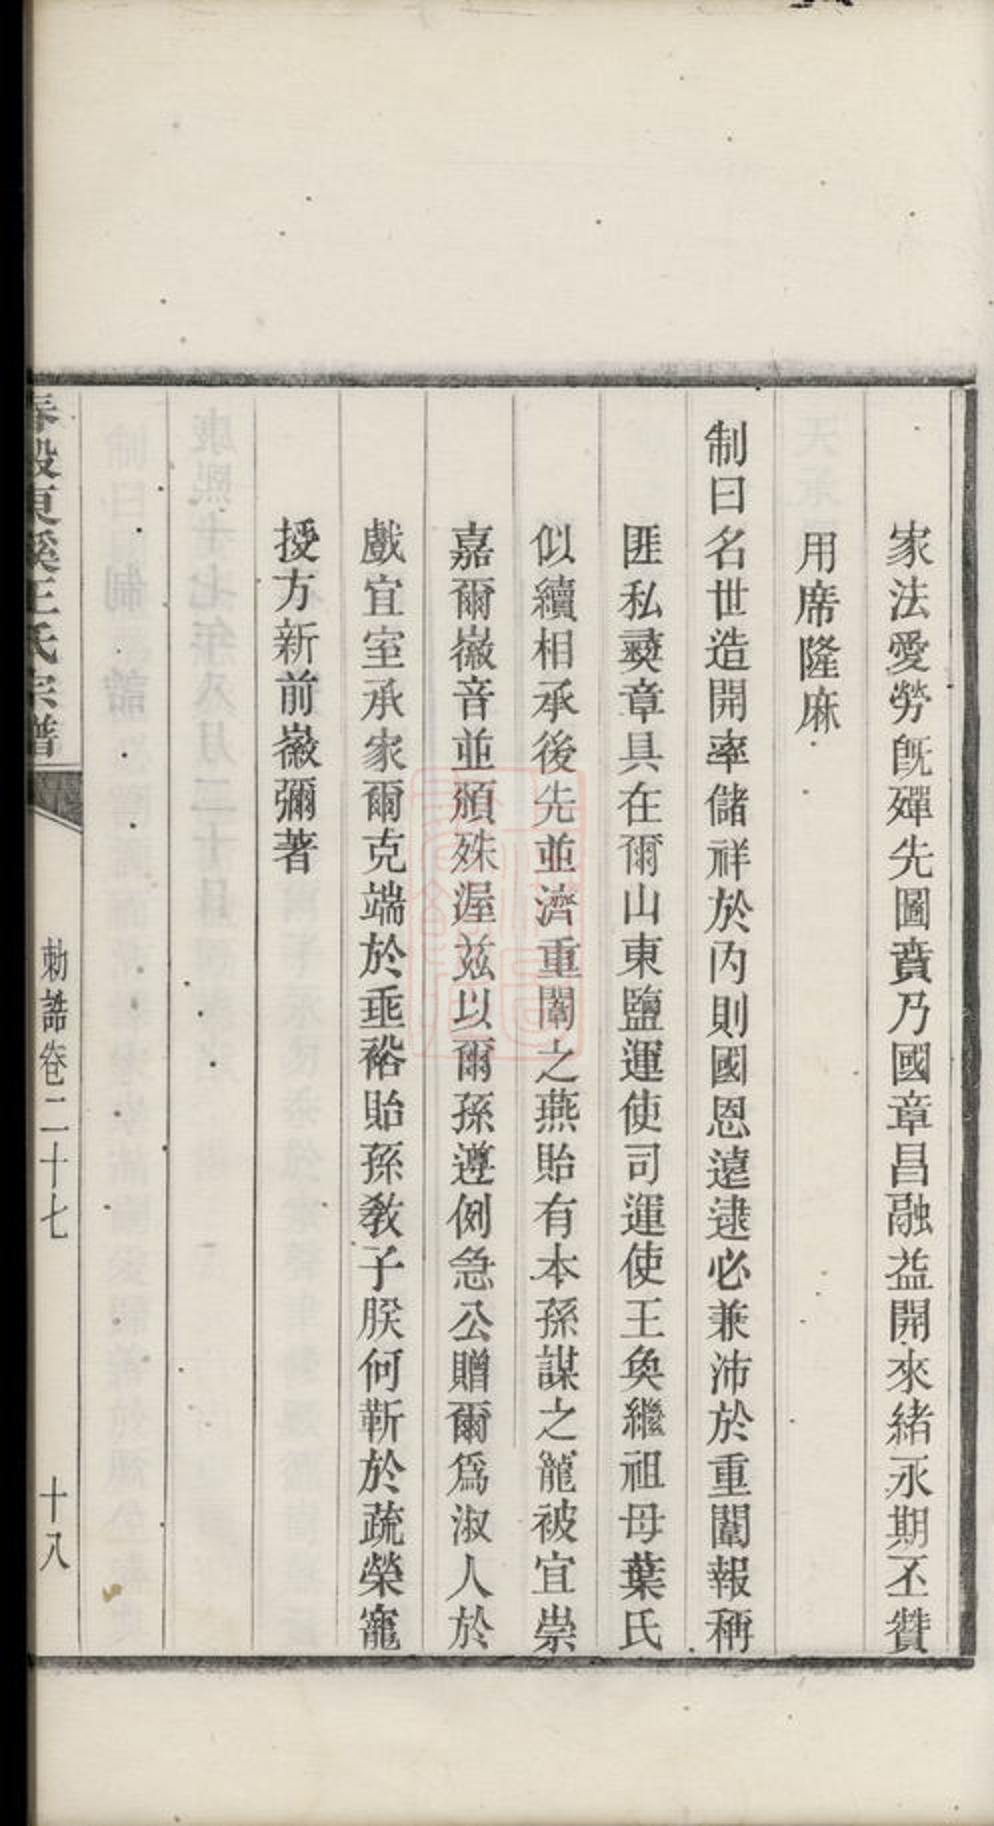 家法愛勞旣殫先圖賁乃國章昌融益開來緒永期丕贊
用席隆庥
制曰名世造開率儲祥於內則國恩遠逮必兼沛於重闈報稱
匪私彛章具在爾山東鹽運使司運使王奐繼祖母葉氏
似續相承後先並濟重闈之燕貽有本孫謀之寵被宜崇
嘉爾徽音並頒殊渥玆以爾孫遵例急公贈爾爲淑人於
戲宜室承家爾克端於垂裕貽孫敎子朕何靳於疏榮寵
授方新前徽彌著
春穀東溪王氏宗譜
勅誥卷二十七
十八